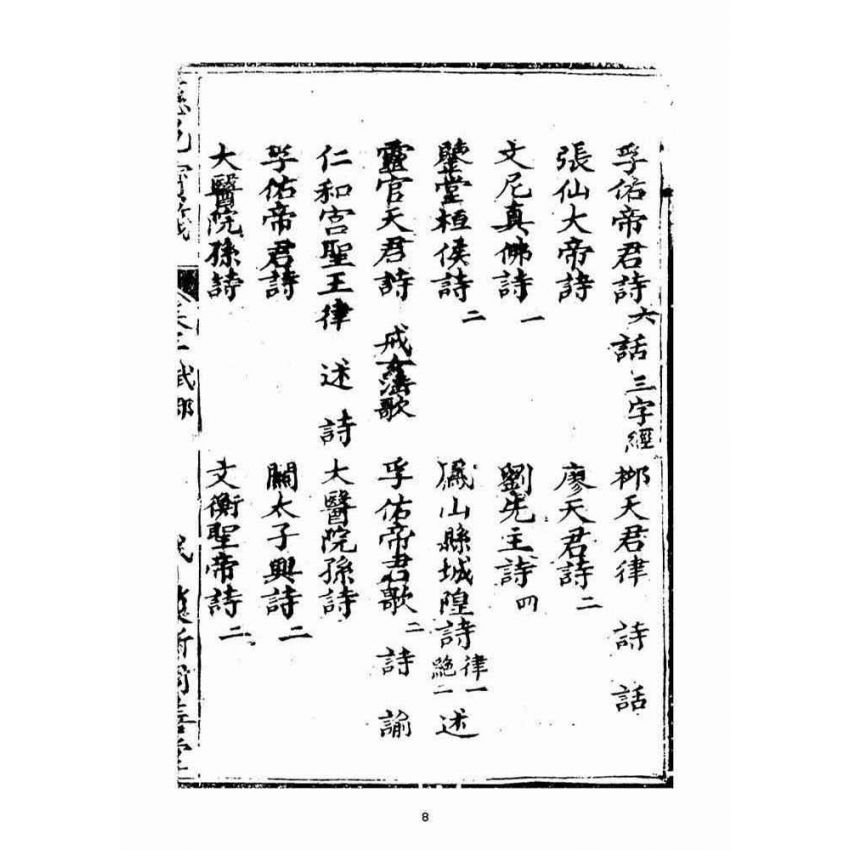 孚佑帝君詩六話 三字經 柳天君律 詩 話
張仙大帝詩 廖天君詩二
文尼真佛詩一 劉先主詩四
鑒堂桓侯詩二 鳳山縣城隍詩律一絕二 述
靈官天君詩 戒 歌 孚佑帝君歌二 詩 諭
仁和宮聖王律 述 詩 大醫院孫詩
孚佑帝君詩 關太子興詩二
大醫院孫詩 文衡聖帝詩二
卷二 部
8